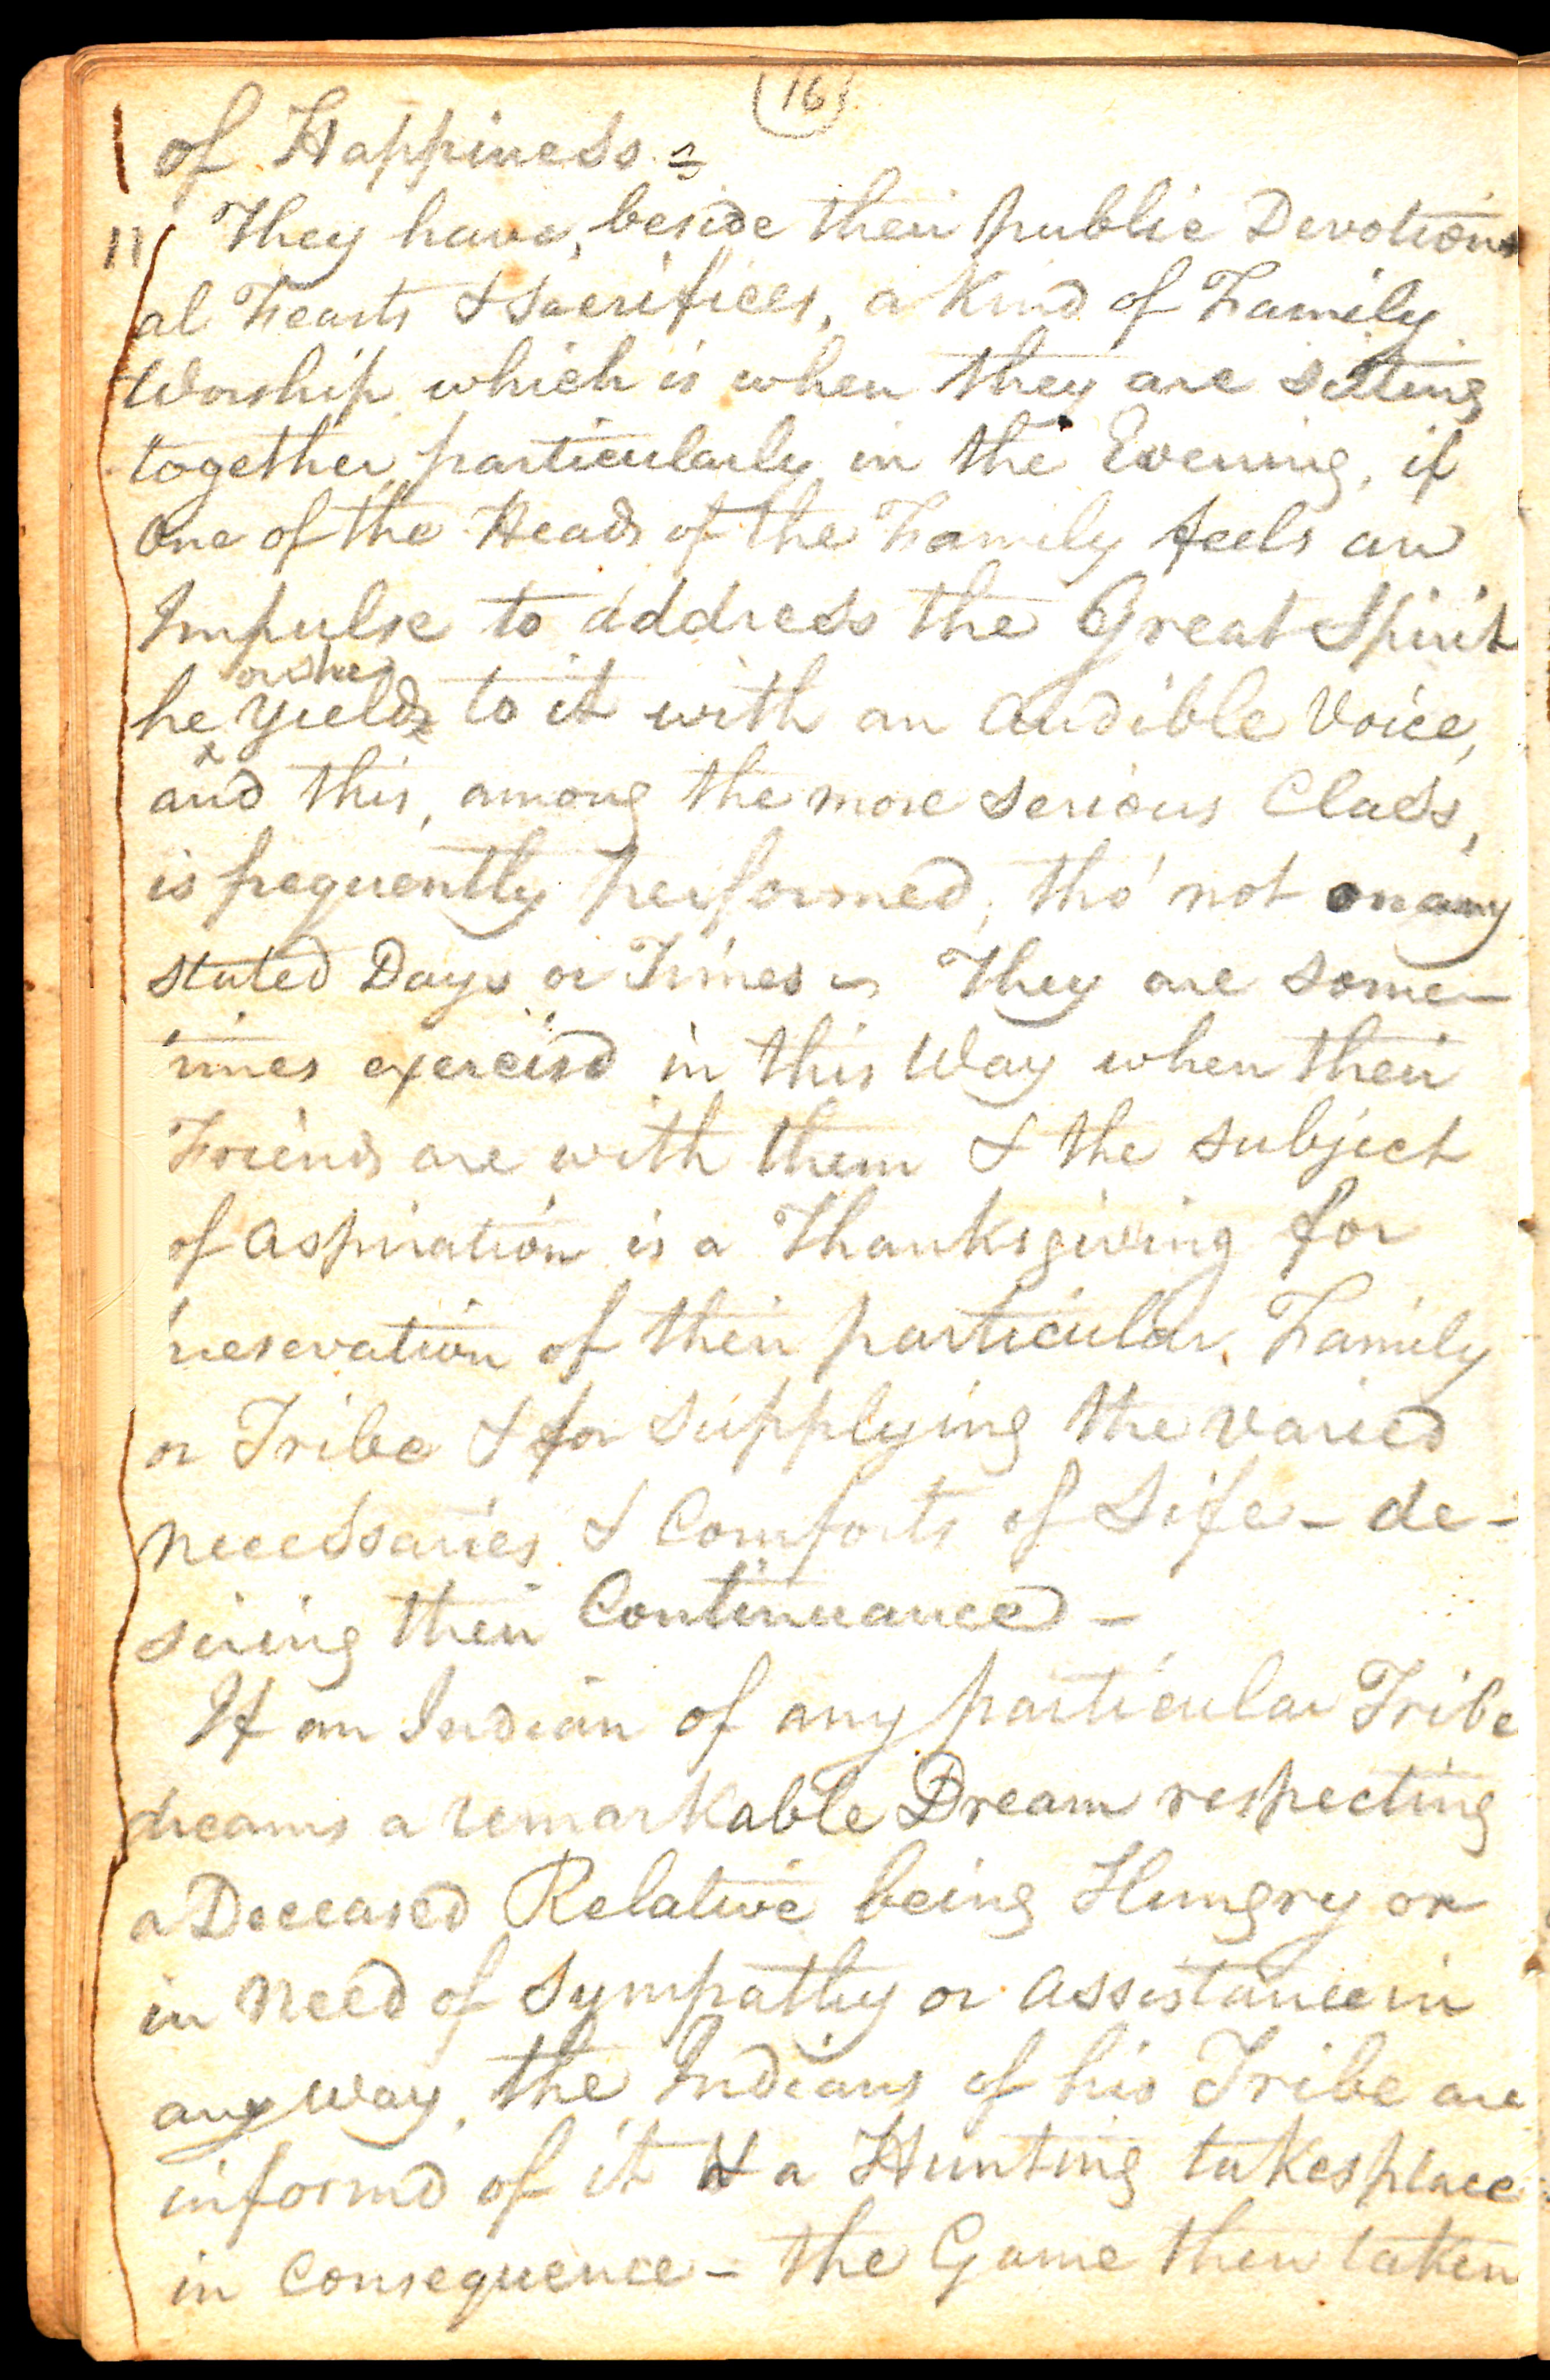 (16)
of Happiness -
11 They have, beside their public Devotion
al Feasts & Sacrifices, a Kind of Family
Worship which is when they are sitting
together particularly in the Evening, if
One of the Heads of the Family feels an
Impulse to address the Great Spirit
or she
he yields to it with an audible Voice,
and this, among the more serious Class,
is frequently performed, tho' not on any
stated Days or Times - They are some-
times exercisd in this Way when their
Friends are with them & the subject
of aspiration is a Thanksgiving for
preservation of their particular Family
or Tribe & for supplying the varied
necessaries & Comforts of Life - de-
siring their Continuance -
If an Indian of any particular Tribe
dreams a remarkable Dream respecting
a Deceased Relative being Hungry or
in need of Sympathy or assistance in
any way, the Indians of his Tribe are
informd of it & a Hunting takes place
in consequence - the Game then taken